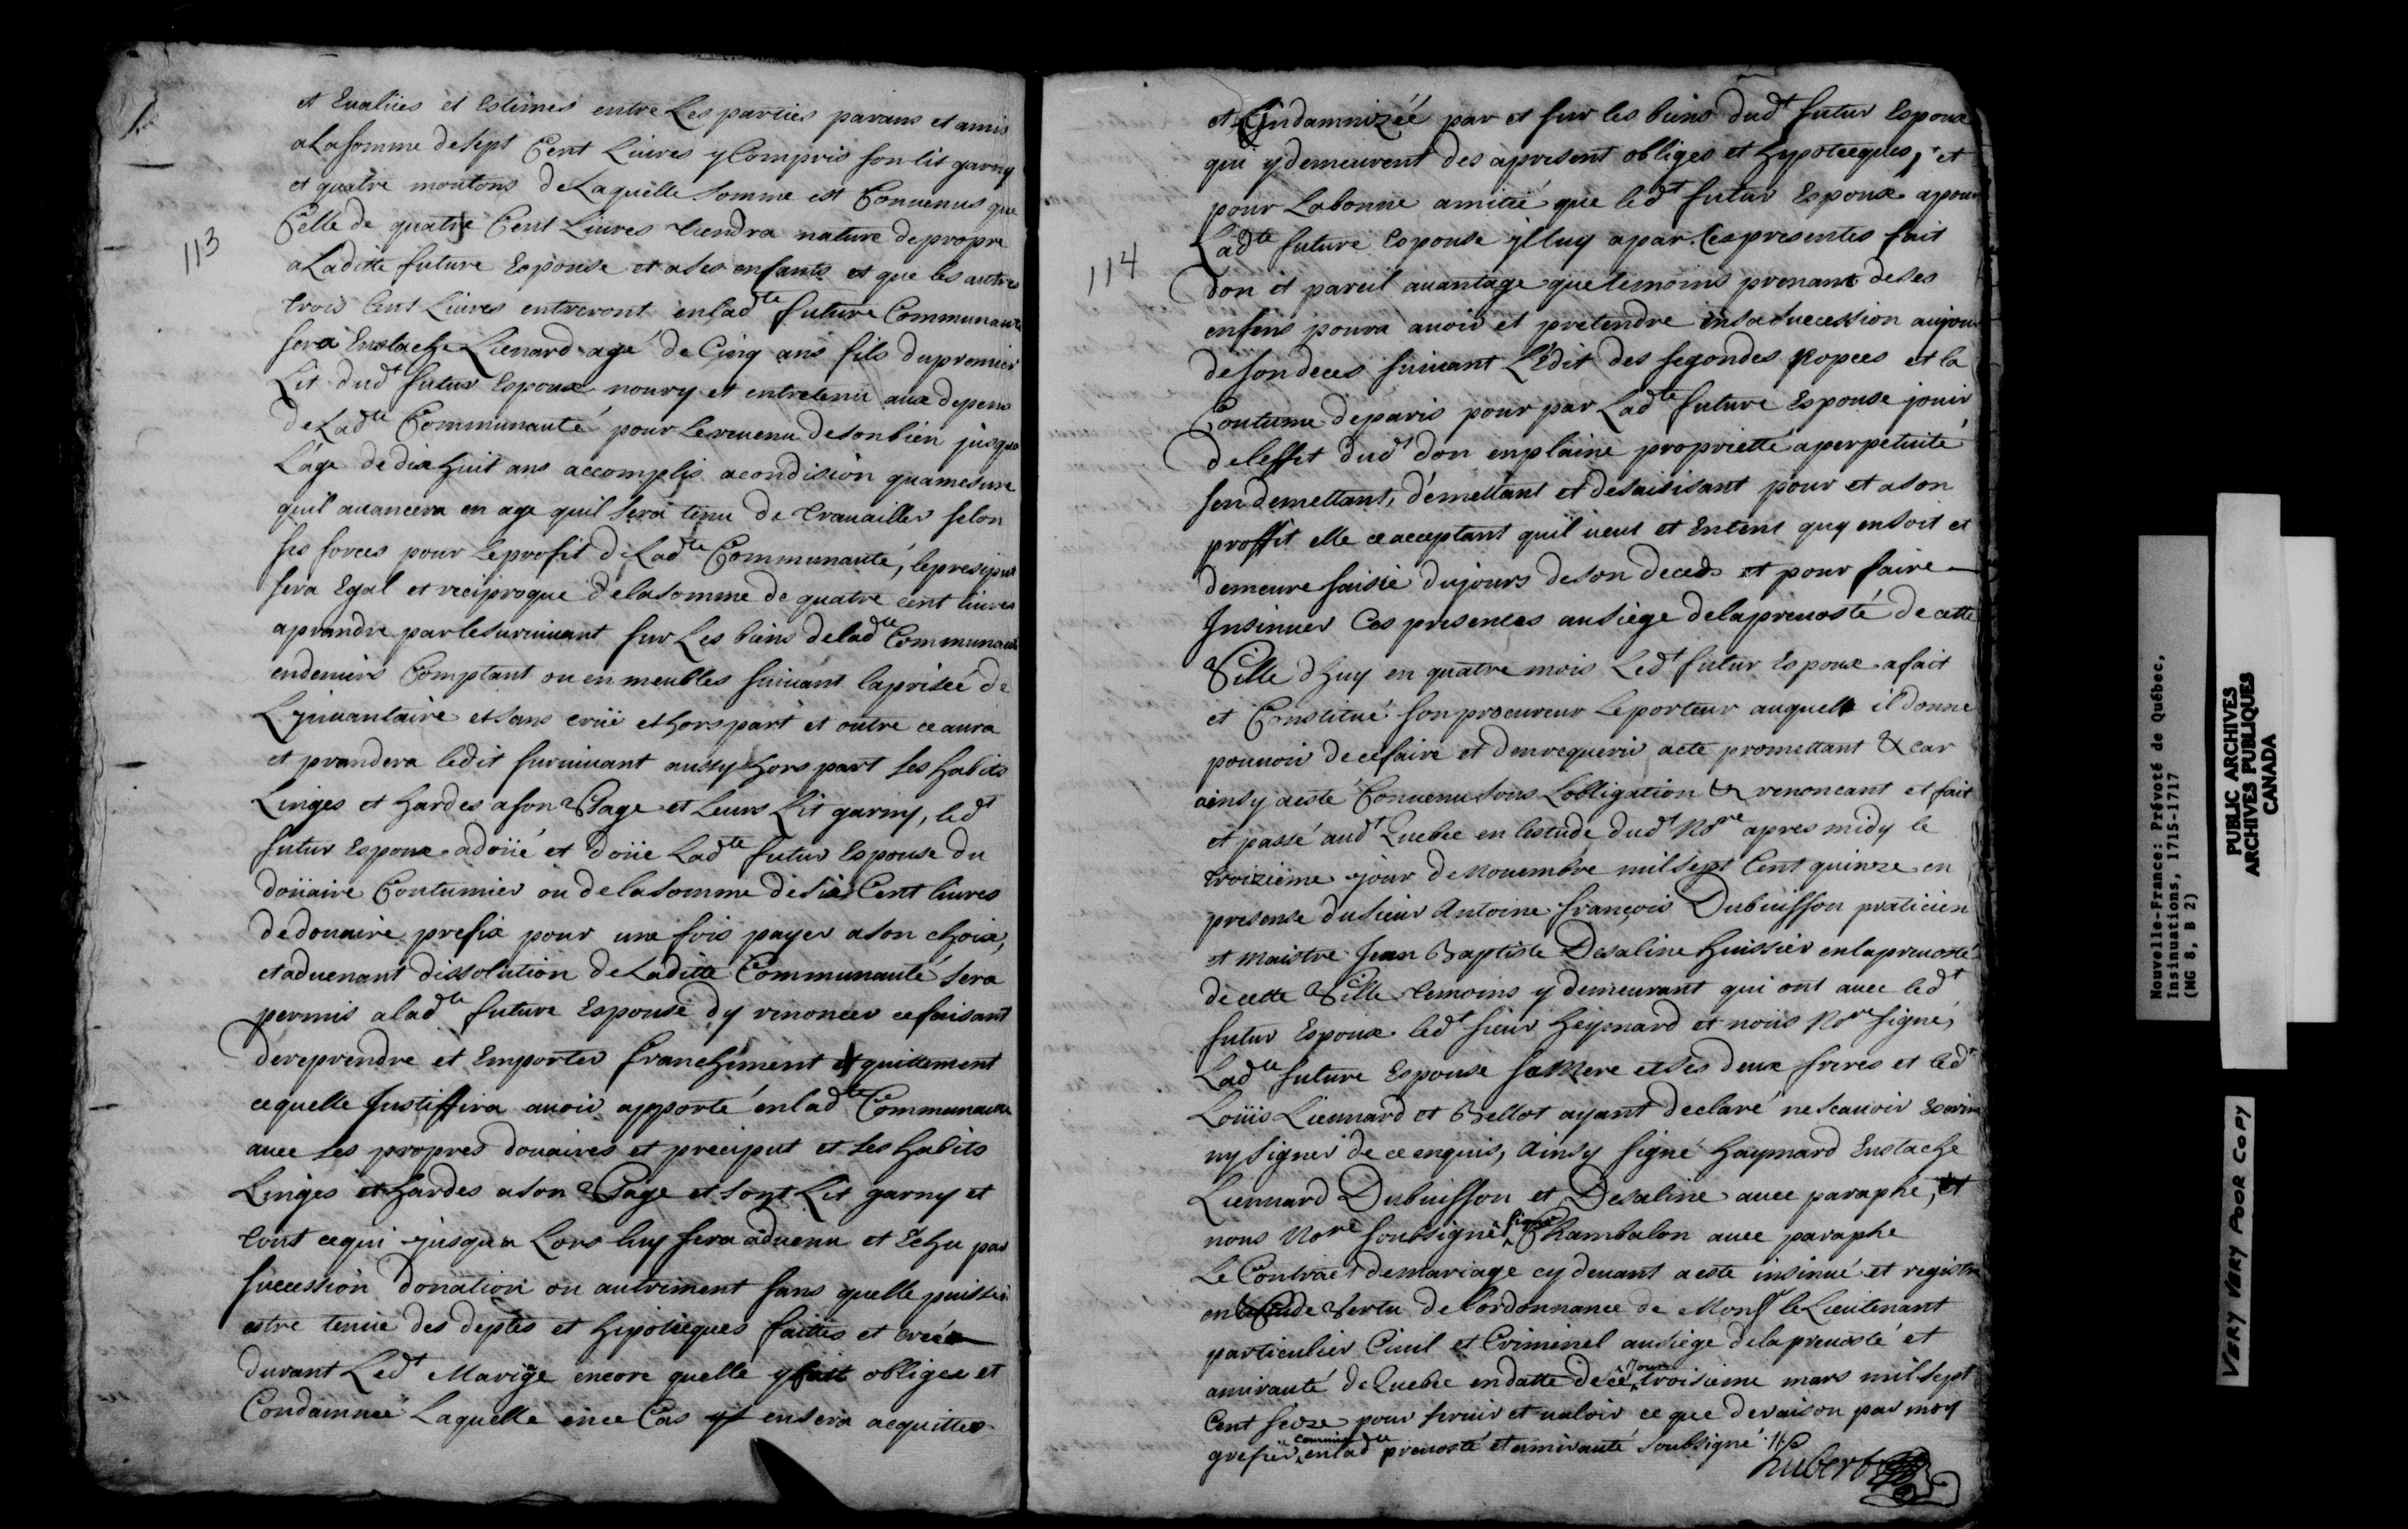 et Evaluées et Estimés entre Les parties parans et amis
a La somme de sept Cent Liures y Compris son lit garny
et quatre moutons de Laquelle somme est Conuenus que
Celle de quatre Cent Liures tiendra nature de propre
a Laditte future Espouse et a ses enfants et que les autres
trois Cent Liures entreront en lad.te future Communauté
sera Eustache Lienard agé de Cinq ans fils du premier
Lit dud.t futur Espoux noury et entretenu aux depens
de Lad.te Communauté pour Le reuenu de son bien jusqua
L'age de dix huit ans accomplis a condision qua mesure
quil auancera en age quil sera tenu de trauailler selon
ses forces pour le profit de Lad.te Communauté, le preciput
sera Egal et reciproque de la somme de quatre cent liures
a prandre par le suruiuant sur Les biens de lad.te Communauté
en deniers Comptant ou en meubles suiuant la prisée de
L'jnuantaire et sans crüe et hors part et outre ce aura
et prandera ledit suruiuant aussy hors part ses habits
Linges et hardes a son Usage et Leurs Lit garny, led.t
futur Espoux a doüé et doüe Lad.te futur Espouse du
doüaire Coutumier ou de la somme de six Cent liures
de douaire prefix pour une fois payer a son choix,
et aduenant dissolution de Laditte Communauté sera
permis a lad.te future Espouse d'y renoncer ce faisant
de reprendre et Emporter franchement et quittement
ce quelle Justiffira auoir apporté en lad.te Communauté
auec ses propres douaires et preciput et ses habits
Linges et hardes a son Usage et son Lit garny et
tout ce qui jusqu'a Lors luy sera aduenu et Echu par
succession donation ou autrement sans quelle puisse
estre tenue des deptes et hipotieques faittes et creés
durant Led.t Mariage encore quelle y fut obligée et
Condamnée Laquelle en ce Cas en sera acquittée
113
et Eindamnizéé par et sur les biens dud.t futur Espoux
qui y demeurent des apresent obliges et hypotecques, et
pour La bonne amitié que led.t futur Espoux a pour
Lad.te future Espouse jl luy a par Ces presentes fait
don et pareil auantage que le moins prenant de ses
enfens poura auoir et pretendre en sa sucession au jour
de son deces suiuant L'Edit des segondes Nopces et la
Coutume de paris pour par Lad.te future Espouse jouir
de l'effet dud.t don en plaine proprietté a perpetuité
s'en demettant, démettant et desaisisant pour et a son
proffit elle ce acceptant quil ueut et Entent quy en soit et
demeure saisie du jours de son deced et pour faire
Insinuer Ces presentes au siege de la preuosté de cette
Ville d'huy en quatre mois Led.t futur Espoux a fait
et Constitué son procureur Le porteur auquell il donne
pouuoir de ce faire et d'en requerir acte promettant &c car
ainsy a esté Conuenu sous L'obligation &c renoncant et fait
et passé aud.t Quebec en l'estude dud.t No.re apres midy le
troizieme jour de Nouembre mil sept Cent quinze en
presense du sieur Antoine françois Dubuisson praticien
et maistre Jean Baptiste Desaline huissier en la preuosté
de cette Ville temoins y demeurant qui ont auec led.t
futur Espoux led.t sieur heymard et nous No.re signé,
Lad.te future Espouse sa Mere et ses deux freres et led.t
Loüis Liennard et Bellot ayant declaré ne scauoir Escrire
ny signer de ce enquis, Ainsy signé haymard Eustache
Liennard Dubuisson et Desaline auec paraphe, et
nous No.re soubsigné signé Chambalon auec paraphe
Le Contract de mariage cy deuant a esté insinué et registré
en Vertu de l'ordonnance de Mons.r le Lieutenant
particulier Ciuil et Criminel au siege de la preuosté et
amirauté de Quebec en datte de ce Jour troisieme mars mil sept
Cent seize pour seruir et ualoir ce que de raison par moy
grefier commis en lad.te preuosté et amirauté soubsigné
hubert
114
Nouvelle-France: Prévoté de Québec,
Insinuations, 1715-1717
(MG 8, B 2)
PUBLIC ARCHIVES
ARCHIVES PUBLIQUES
CANADA
VERY VERY POOR COPY